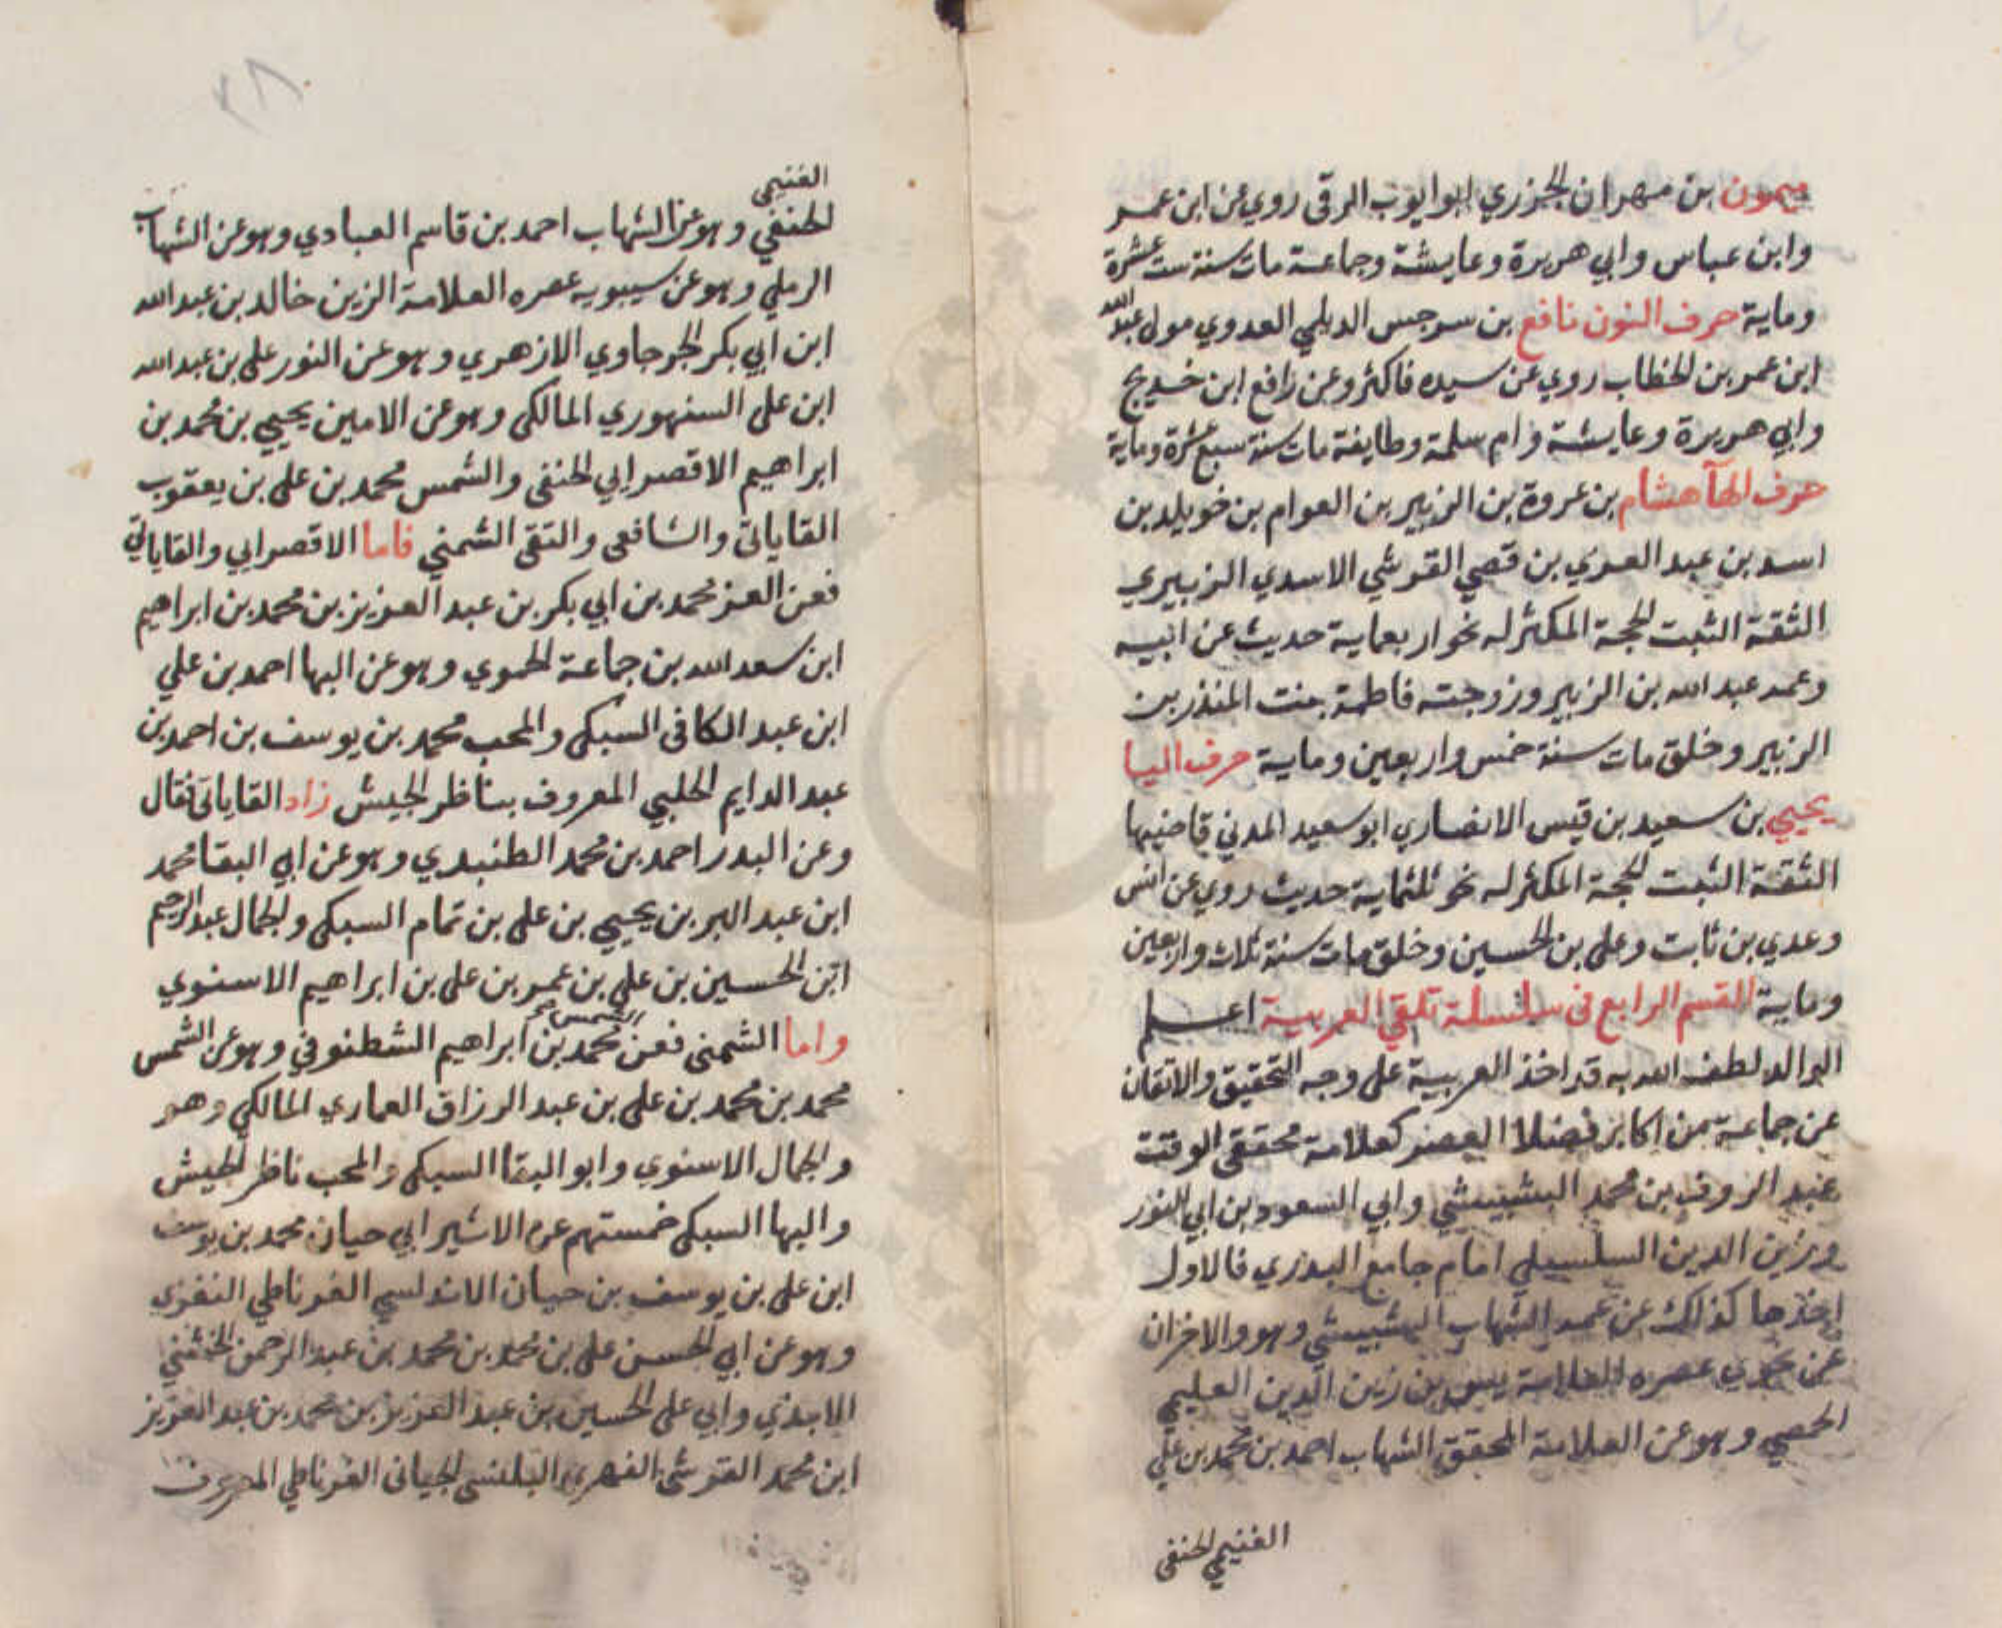 ميمون بن مهران الجزري ابو ايوب الرقى روي عن ابن عمر
وابن عباس وابي هريرة وعايشة وجماعة مات سنة ست عشرة
وماية حرف النون نافع بن سرجس الديلمي العدوي مولى عبد الله
ابن عمر بن الخطاب روي عن سيده فاكثر وعن رافع ابن خديج
وابي هريرة وعايشة وام سلمة وطايفة مات سنة سبع عشرة وماية
حرف الهآ هشام بن عروة بن الزبير بن العوام بن خويلد بن
اسد بن عبد العزي بن قصي القرشي الاسدي الزبيري
الثقة الثبت الحجة المكثر له نحو اربعماية حديث عن ابيه
وعمه عبد الله بن الزبير وزوجته فاطمة بنت المنذر بن
الزبير وخلق مات سنة خمس واربعين وماية حرف اليا
يحيي بن سعيد بن قيس الانصاري ابو سعيد المدني قاضيها
الثقة الثبت الحجة المكثر له نحو ثلثماية حديث روي عن انس
وعدي بن ثابت وعلى بن الحسين وخلق مات سنة ثلاث واربعين
وماية القسم الرابع فى سلسلة تلقي العربية اعلم
ان الوالد لطف الله به قد اخذ العربية على وجه التحقيق والاتقان
عن جماعة من اكابر فضلا العصر كعلامة محققي الوقت
عبد الروف بن محمد البشبيشي وابي السعود بن ابي النور
وزين الدين السلسيلي امام جامع البدري فالاول
اخذها كذلك عن عمه الشهاب البشبيشي وهو والاخران
عن نحوي عصره العلامة يس بن زين الدين العليمي
الحمصي وهو عن العلامة المحقق الشهاب احمد بن محمد بن علي
الغنيمي الحنفى
الغنيمي
الحنفي وهو عن الشهاب احمد بن قاسم العبادي وهو عن الشهاب
الرملي وهو عن سيبويه عصره العلامة الزين خالد بن عبد الله
ابن ابي بكر الجرجاوي الازهري وهو عن النور على بن عبد الله
ابن على السنهوري المالكى وهو عن الامين يحيي بن محمد بن
ابراهيم الاقصرايي الحنفى والشمس محمد بن على بن يعقوب
القاياتى والشافعى والتقى الشمني فاما الاقصرايي والقاياتي
فعن العز محمد بن ابي بكر بن عبد العزيز بن محمد بن ابراهيم
ابن سعد الله بن جماعة الحموي وهو عن البها احمد بن علي
ابن عبد الكافى السبكى والمحب محمد بن يوسف بن احمد بن
عبد الدايم الحلبي المعروف بناظر الجيش زاد القاياتى فقال
وعن البدر احمد بن محمد الطنبدي وهو عن ابي البقا محمد
ابن عبد البر بن يحيي بن على بن تمام السبكى والجمال عبد الرحيم
ابن الحسين بن علي بن عمر بن على بن ابراهيم الاسنوي
واما الشمنى فعن الشمس محمد بن ابراهيم الشطنوفي وهو عن الشمس
محمد بن محمد بن على بن عبد الرزاق الغماري المالكي وهو
والجمال الاسنوي وابو البقا السبكى والمحب ناظر الجيش
والبها السبكى خمستهم عن الاثير ابي حيان محمد بن يوسف
ابن على بن يوسف بن حيان الاندلسي الغرناطي النفزي
وهو عن ابي الحسن على بن محمد بن محمد بن عبد الرحمن الخشني
الابدي وابي على الحسين بن عبد العزيز بن محمد بن عبد العزيز
ابن محمد القرشى الفهري البلنسى الجيانى الغرناطي المعروف